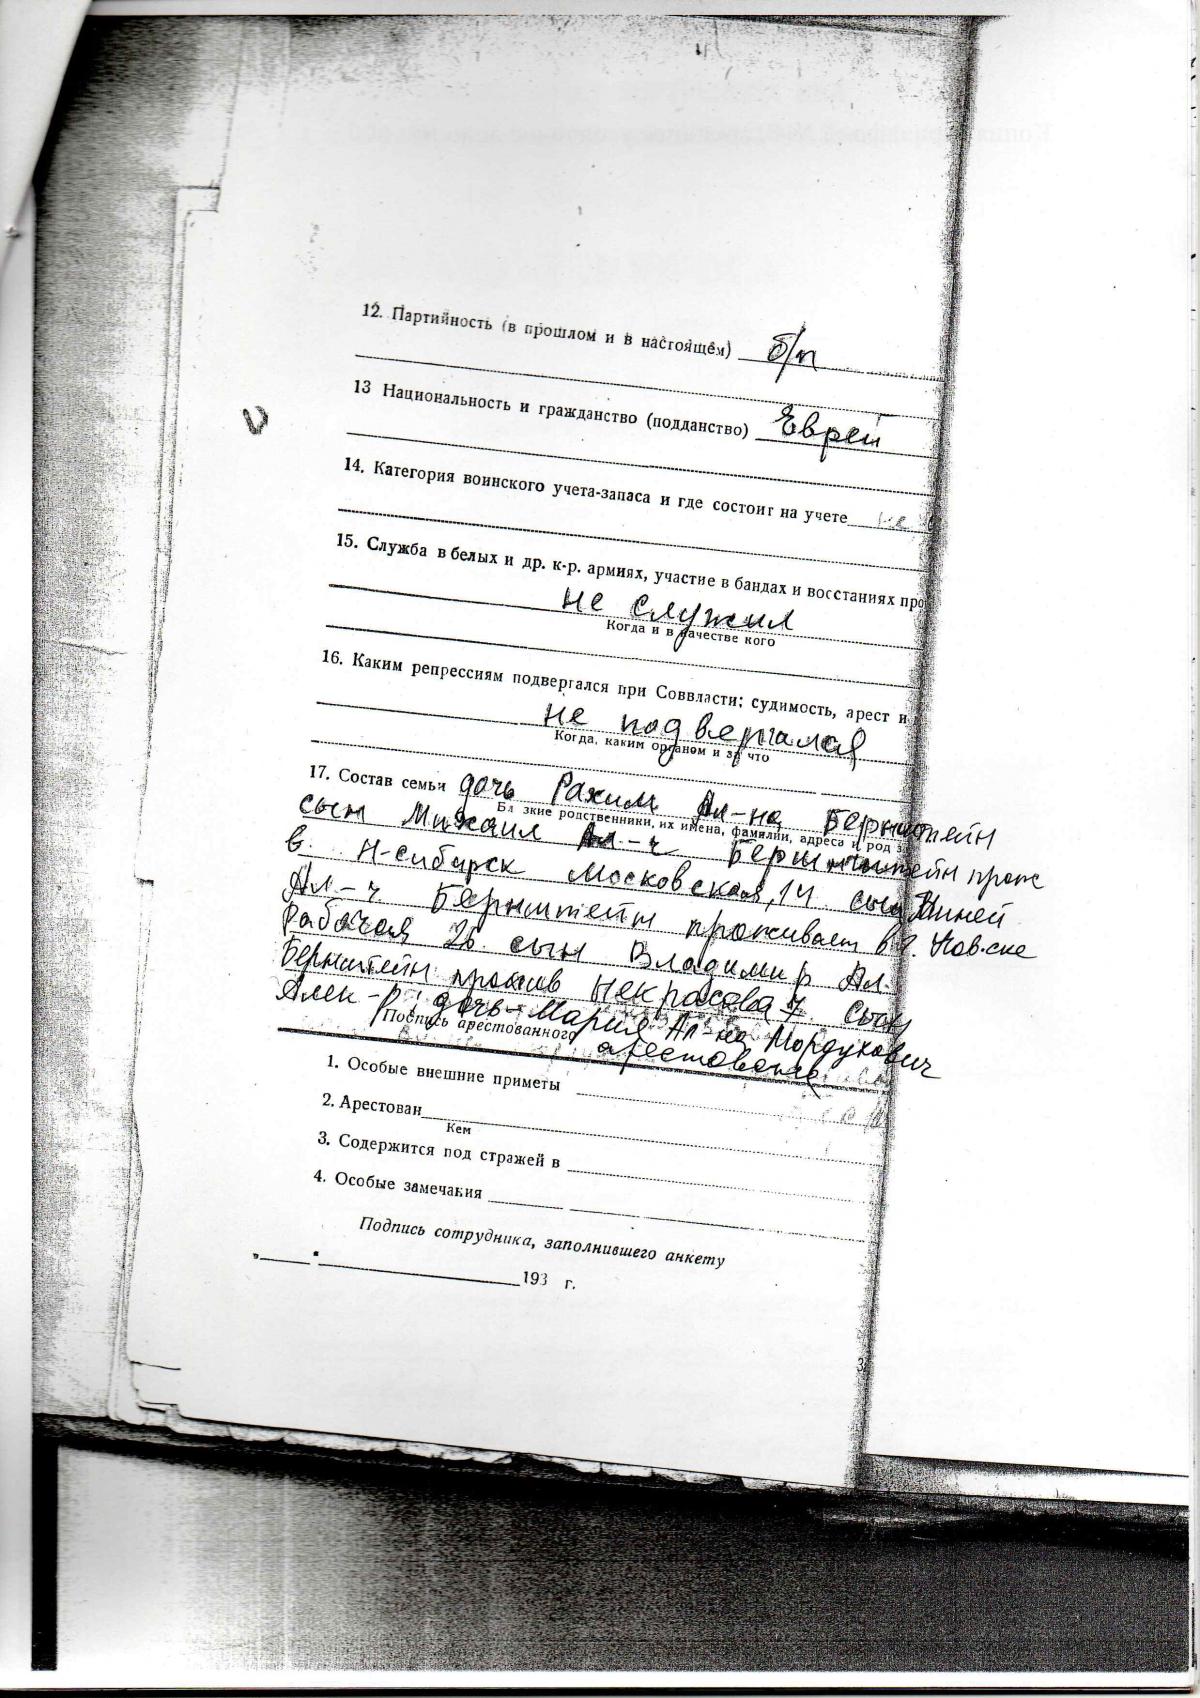 12. Партийность (в прошлом и в настоящем) б/п
13 Национальность и гражданство (подданство) Еврей
14. Категория воинского учета-запаса и где состоит на учете не
15. Служба в белых и др. к-р. армиях, участие в бандах и восстаниях про
не служил
Когда и в качестве кого
16. Каким репрессиям подвергался при Соввласти: судимость, арест и
не подвергался
Когда, каким органом и за что
17. Состав семьи дочь Рахим Ал-на Бернштейн
Бл зкие родственники, их имена, фамилии, адреса и род за
сын Михаил Ал-ч Бернштейн прож
в Н-сибирск Московская, 14 сын
Ал-ч Бернштейн проживает в г. Нов-ске
Рабочая 26 сын Владимир Ал.
Бернштейн прожив Некрасова 7 сын
Алек-р; дочь-Мария Ал-на Мордухович
Подпись арестованного
арестована
1. Особые внешние приметы
2. Арестован
Кем
3. Содержится под стражей в
4. Особые замечания
Подпись сотрудника, заполнившего анкету
„ “ 193 г.